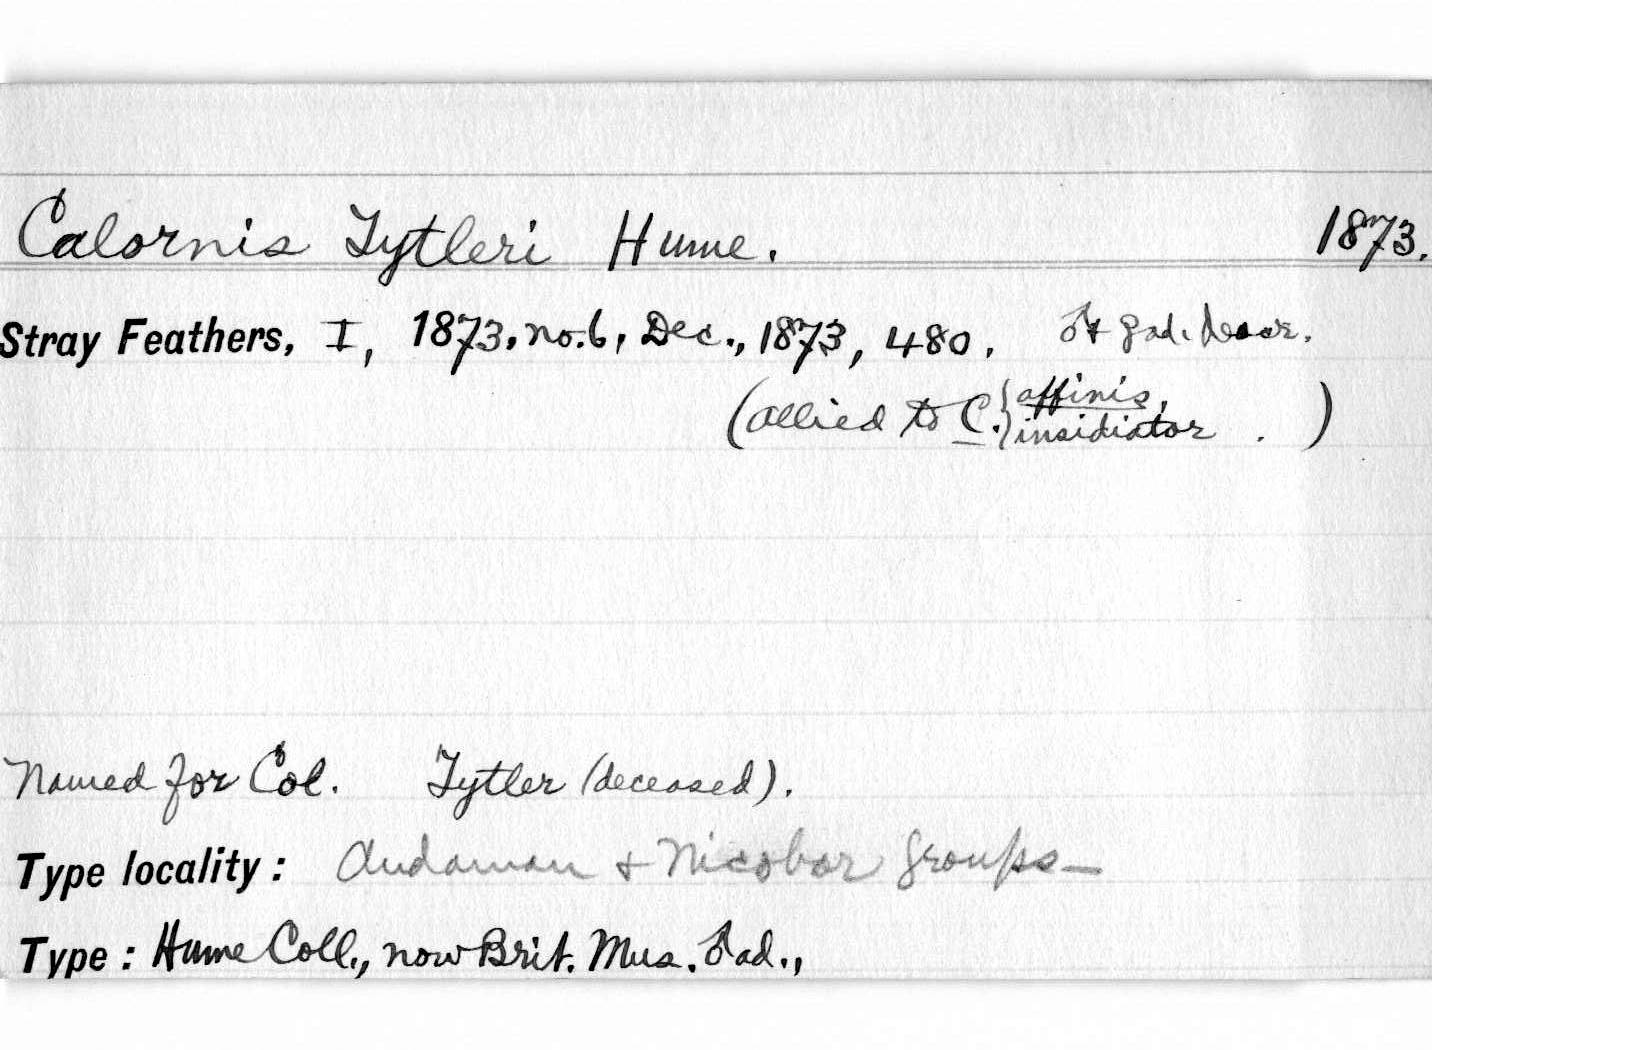 Calornis Tytleri Hume. 1873.
Stray Feathers, I, 1873, no.6, Dec., 1873, 480. ♂♀ ad. descr.
(allied to C. { affinis,
insidiator . )
Named for Col. Tytler (deceased).
Type locality: Andaman + Nicobar groups—
Type: Hume Coll., now Brit. Mus. ♂ ad.,